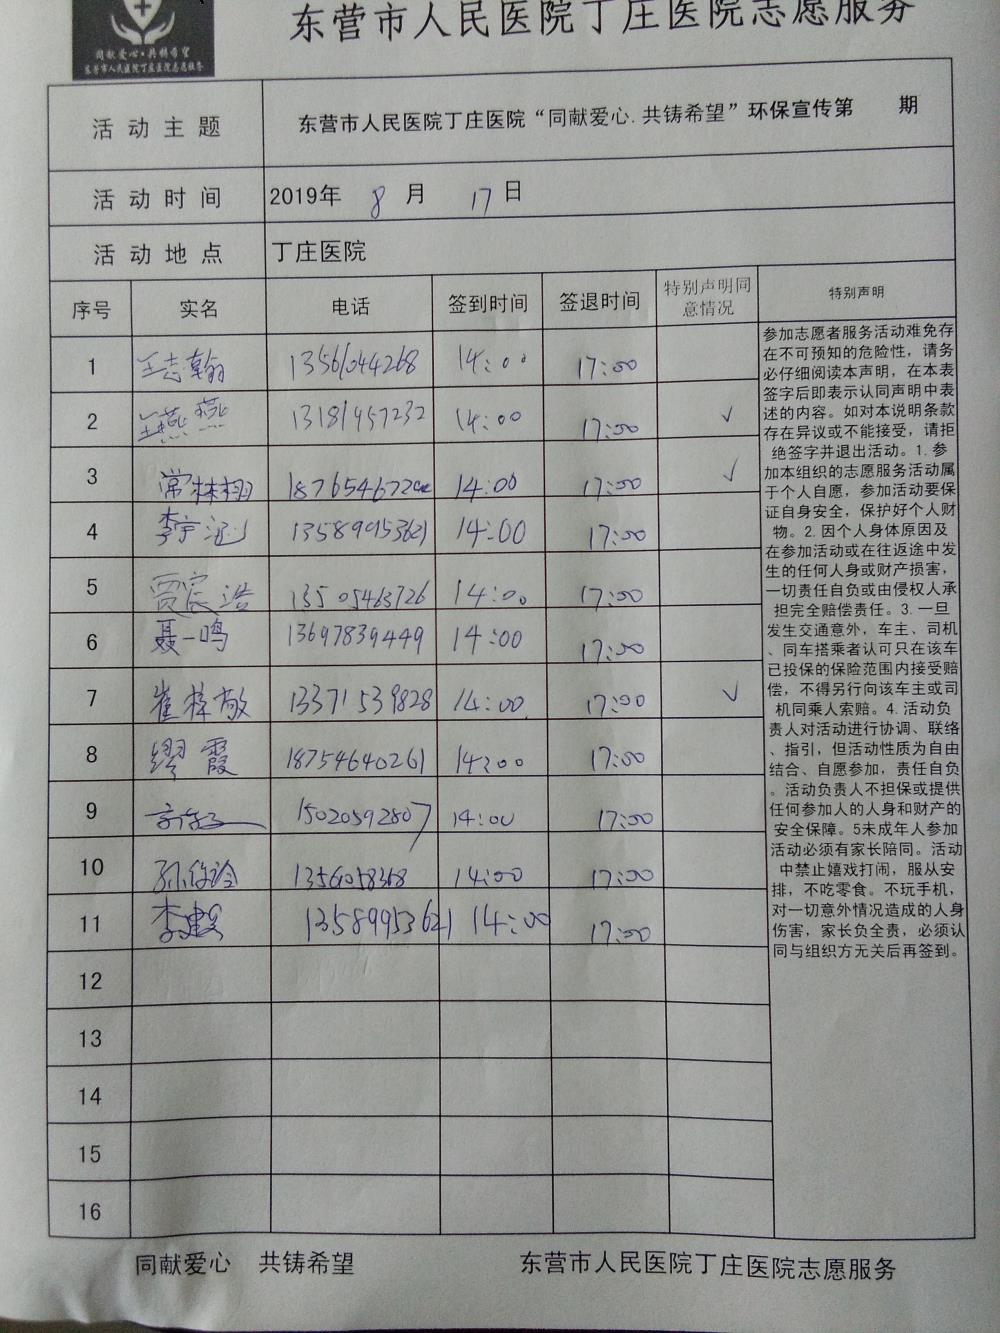 同献爱心·共铸希望
东营市人民医院丁庄医院志愿服务
东营市人民医院丁庄医院志愿服务
活动主题 东营市人民医院丁庄医院“同献爱心.共铸希望”环保宣传第 期
活动时间 2019年 8 月 17 日
活动地点 丁庄医院
序号 实名 电话 签到时间 签退时间 特别声明同意情况 特别声明
1 王志翰 13561044268 14:00 17:00
2 王燕燕 13181957232 14:00 17:00 √
3 常林栩 1876546722 14:00 17:00 √
4 李宇涵 135899953621 14:00 17:00
5 贾宸浩 13505463726 14:00 17:00
6 聂一鸣 13697839449 14:00 17:00
7 崔梓敬 13371539828 14:00 17:00 √
8 缪霞 18754640261 14:00 17:00
9 15020592807 14:00 17:00
10 14:00 17:00
11 李 13589953621 14:00 17:00
12
13
14
15
16
参加志愿者服务活动难免存
在不可预知的危险性，请务
必仔细阅读本声明，在本表
签字后即表示认同声明中表
述的内容。如对本说明条款
存在异议或不能接受，请拒
绝签字并退出活动。1.参
加本组织的志愿服务活动属
于个人自愿，参加活动要保
证自身安全，保护好个人财
物。2.因个人身体原因及
在参加活动或在往返途中发
生的任何人身或财产损害，
一切责任自负或由侵权人承
担完全赔偿责任。3.一旦
发生交通意外，车主、司机
、同车搭乘者认可只在该车
已投保的保险范围内接受赔
偿，不得另行向该车主或司
机同乘人索赔。4.活动负
责人对活动进行协调、联络
、指引，但活动性质为自由
结合、自愿参加，责任自负
。活动负责人不担保或提供
任何参加人的人身和财产的
安全保障。5未成年人参加
活动必须有家长陪同。活动
中禁止嬉戏打闹，服从安
排，不吃零食。不玩手机，
对一切意外情况造成的人身
伤害，家长负全责，必须认
同与组织方无关后再签到。
同献爱心 共铸希望 东营市人民医院丁庄医院志愿服务